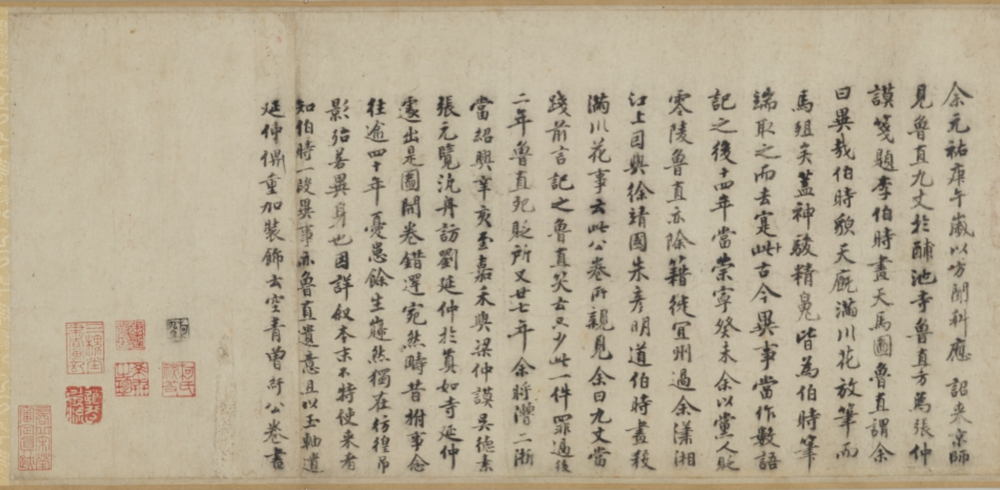 余元祐庚午歲以方聞科應 詔来京師
見魯直九丈於酺池寺魯直方為張仲
謨箋題李伯時畫天馬圖魯直謂余
曰異哉伯時貌天廐滿川花放筆而
馬殂矣蓋神駿精魄皆為伯時筆
端取之而去寔此古今異事當作數語
記之後十四年當崇寧癸未余以黨人貶
零陵魯直亦除籍徙宜州過余瀟湘
江上因與徐靖國朱彦明道伯時畫殺
滿川花事云此公卷所親見余曰九丈當
踐前言記之魯直笑云只少此一件罪過後
二年魯直死貶所又廿七年余將漕二浙
當紹興辛亥至嘉禾與梁仲謨吳德素
張元覽汎舟訪劉延仲於真如寺延仲
遽出是圖開卷錯遻宛然疇昔拊事念
往逾四十年憂患餘生巋然獨在彷徨吊
影殆若異身也因詳叙本末不特使来者
知伯時一段異事亦魯直遺意且以玉軸遺
延仲俾重加裝飾云空青曾紆公卷書